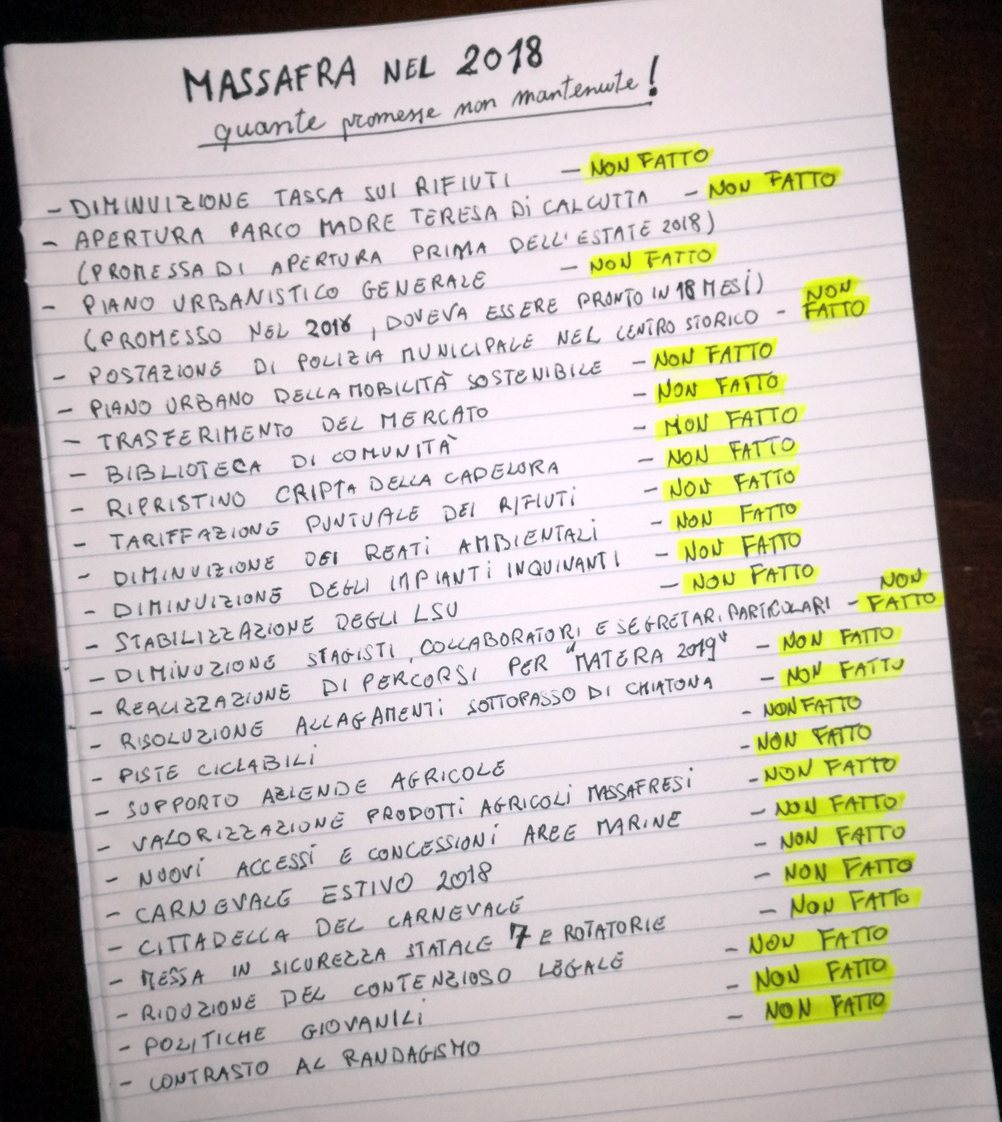 MASSAFRA NEL 2018
quante promesse non mantenute!
- DIMINUIZIONE TASSA SUI RIFIUTI - NON FATTO
- APERTURA PARCO MADRE TERESA Di CALCUTTA - NON FATTO
(PROMESSA DI APERTURA PRIMA DELL'ESTATE 2018)
- PIANO URBANISTICO GENERALE - NON FATTO
(PROMESSO NEL 2016, DOVEVA ESSERE PRONTO IN 18 MESI)
- POSTAZIONE DI POLIZIA MUNICIPALE NEL CENTRO STORICO - NON FATTO
- PIANO URBANO DELLA MOBILITÀ SOSTENIBILE - NON FATTO
- TRASFERIMENTO DEL MERCATO - NON FATTO
- BIBLIOTECA DI COMUNITÀ - NON FATTO
- RIPRISTINO CRIPTA DELLA CADELORA - NON FATTO
- TARIFFAZIONE PUNTUALE DEI RIFIUTI - NON FATTO
- DIMINUIZIONE DEI REATI AMBIENTALI - NON FATTO
- DIMINUIZIONE DEGLI IMPIANTI INQUINANTI - NON FATTO
- STABILIZZAZIONE DEGLI LSU - NON FATTO
- DIMINUZIONE STAGISTI, COLLABORATORI E SEGRETARI PARTICOLARI - NON FATTO
- REALIZZAZIONE DI PERCORSI PER "MATERA 2019" - NON FATTO
- RISOLUZIONE ALLAGAMENTI SOTTOPASSO DI CHIATONA - NON FATTO
- PISTE CICLABILI - NON FATTO
- SUPPORTO AZIENDE AGRICOLE - NON FATTO
- VALORIZZAZIONE PRODOTTI AGRICOLI MASSAFRESI - NON FATTO
- NUOVI ACCESSI E CONCESSIONI AREE MARINE - NON FATTO
- CARNEVALE ESTIVO 2018 - NON FATTO
- CITTADELLA DEL CARNEVALE - NON FATTO
- MESSA IN SICUREZZA STATALE 7 E ROTATORIE - NON FATTO
- RIDUZIONE DEL CONTENZIOSO LEGALE - NON FATTO
- POLITICHE GIOVANILI - NON FATTO
- CONTRASTO AL RANDAGISMO - NON FATTO